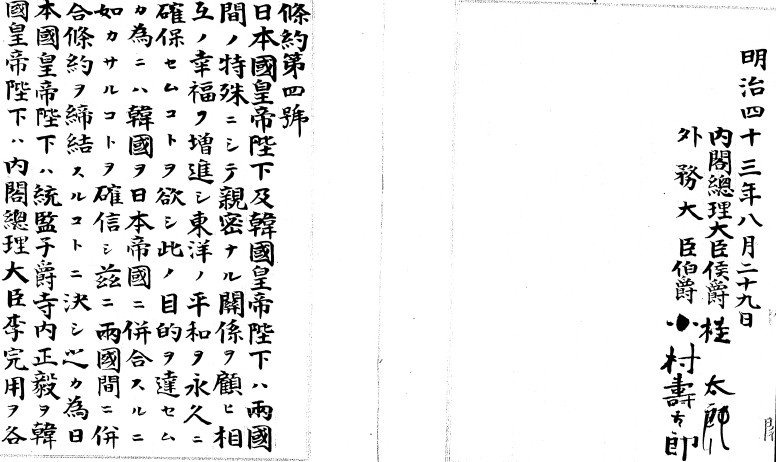 明治四十三年八月二十九日
內閣總理大臣侯爵 桂太郎
外務大臣伯爵 小村壽太郎
條約第四號
日本國皇帝陛下及韓國皇帝陛下ハ兩國
間ノ特殊ニシテ親密ナル關係ヲ顧ヒ相
互ノ幸福ヲ增進シ東洋ノ平和ヲ永久ニ
確保セムコトヲ欲シ此ノ目的ヲ達セム
カ為ニハ韓國ヲ日本帝國ニ併合スルニ
如カサルコトヲ確信シ茲ニ兩國間ニ併
合條約ヲ締結スルコトニ決シ之カ為日
本國皇帝陛下ハ統監子爵寺內正毅ヲ韓
國皇帝陛下ハ內閣總理大臣李完用ヲ各